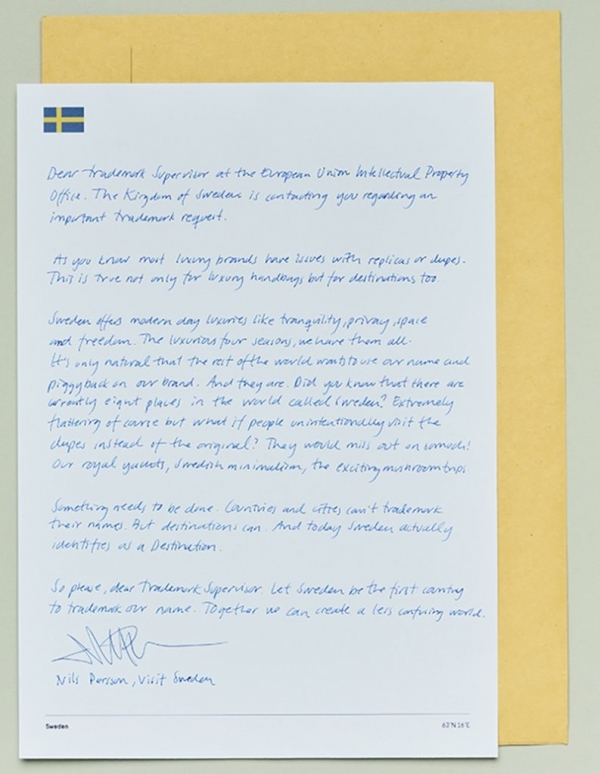 Dear Trademark Supervisor at the European Union Intellectual Property
Office. The Kingdom of Sweden is contacting you regarding an
important trademark request.
As you know most luxury brands have issues with replicas or dupes.
This is true not only for luxury handbags but for destinations too.
Sweden offers modern day luxuries like tranquility, privacy, space
and freedom. The luxurious four seasons, we have them all.
It's only natural that the rest of the world wants to use our name and
piggyback on our brand. And they are. Did you know that there are
currently eight places in the world called Sweden? Extremely
flattering of course but what if people unintentionally visit the
dupes instead of the original? They would miss out on so much!
Our royal yachts, Swedish minimalism, the exciting mushroom trips
Something needs to be done. Countries and cities can't trademark
their names. But destinations can. And today Sweden actually
identifies as a Destination.
So please, dear Trademark Supervisor. Let Sweden be the first country
to trademark our name. Together we can create a less confusing world.
Nils Persson, Visit Sweden
Sweden
62°N 16°E